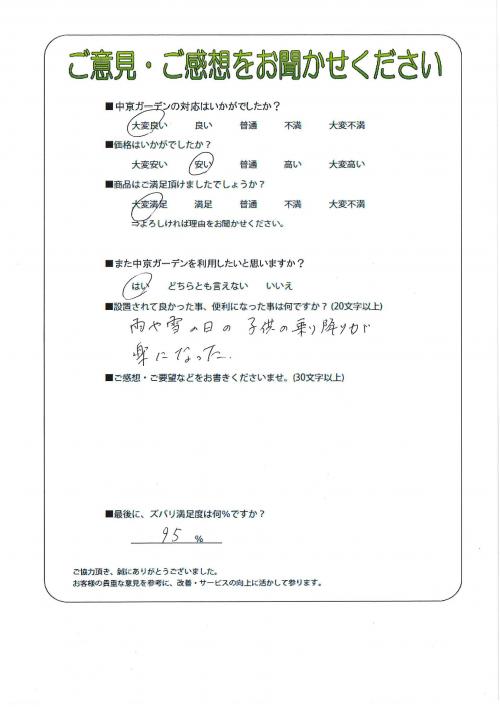 ご意見・ご感想をお聞かせください
■中京ガーデンの対応はいかがでしたか？
大変良い 良い 普通 不満 大変不満
■価格はいかがでしたか？
大変安い 安い 普通 高い 大変高い
■商品はご満足頂けましたでしょうか？
大変満足 満足 普通 不満 大変不満
⇒よろしければ理由をお聞かせください。
■また中京ガーデンを利用したいと思いますか？
はい どちらとも言えない いいえ
■設置されて良かった事、便利になった事は何ですか？(20文字以上)
雨や雪の日の子供の乗り降りが
楽になった.
■ご感想・ご要望などをお書きくださいませ。(30文字以上)
■最後に、ズバリ満足度は何％ですか？
95 %
ご協力頂き、誠にありがとうございました。
お客様の貴重な意見を参考に、改善・サービスの向上に活かして参ります。